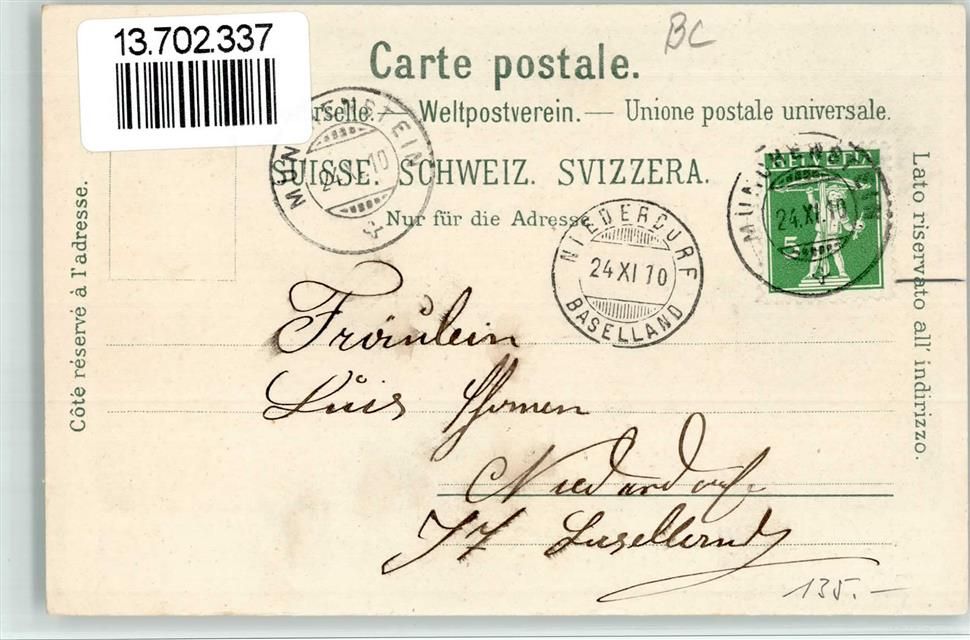 13.702.337
BC
Carte postale.
erselle. Weltpostverein. — Unione postale universale.
SUISSE. SCHWEIZ. SVIZZERA.
Nur für die Adresse
Côté réservé à l'adresse.
Lato riservato all' indirizzo.
MÜNCHENSTEIN
24.XI.10
NIEDERDORF
24 XI 10
BASELLAND
MÜNCHENSTEIN
24.XI.10
HELVETIA
5
Fräulein
Luis
Niederdorf
Baselland
135.–